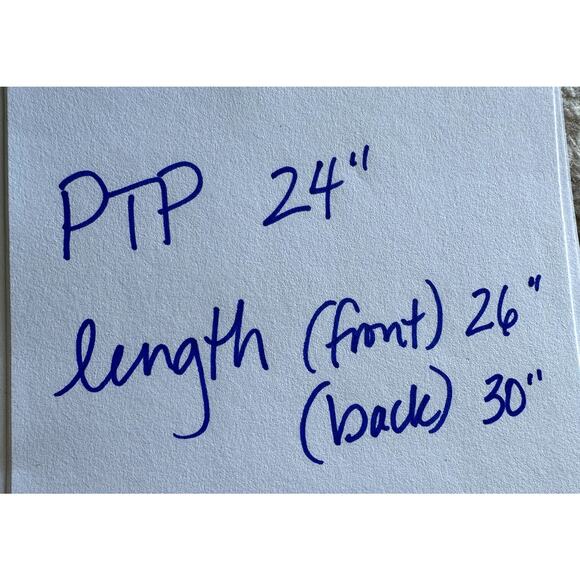 PTP 24"
length (front) 26"
(back) 30"